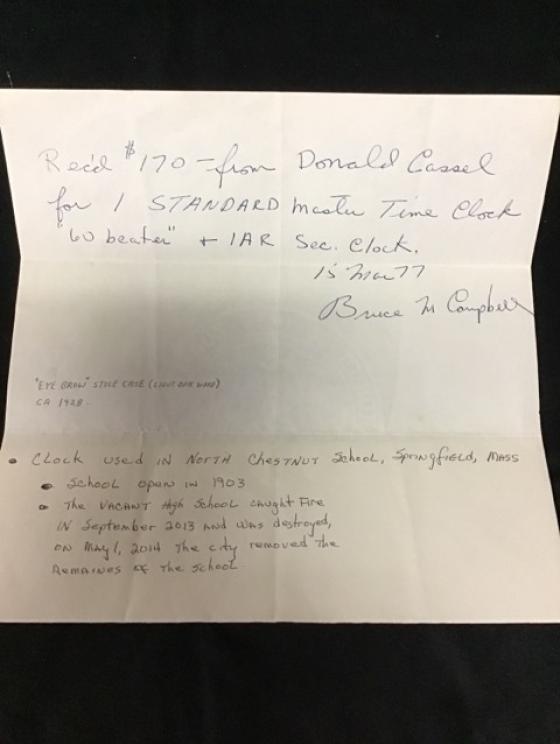 Rec'd $170 - from Donald Cassel
for 1 STANDARD Master Time Clock
"60 beater" + 1AR Sec. Clock.
15 Mar 77
Bruce M Campbell
"EYE BROW" STYLE CASE (LIGHT OAK WOOD)
CA 1928.
• Clock used in North Chestnut School, Springfield, Mass
• School open in 1903
• The VACANT High School caught Fire
IN September 2013 and was destroyed,
ON May 1, 2014 The city removed The
Remaines of The School